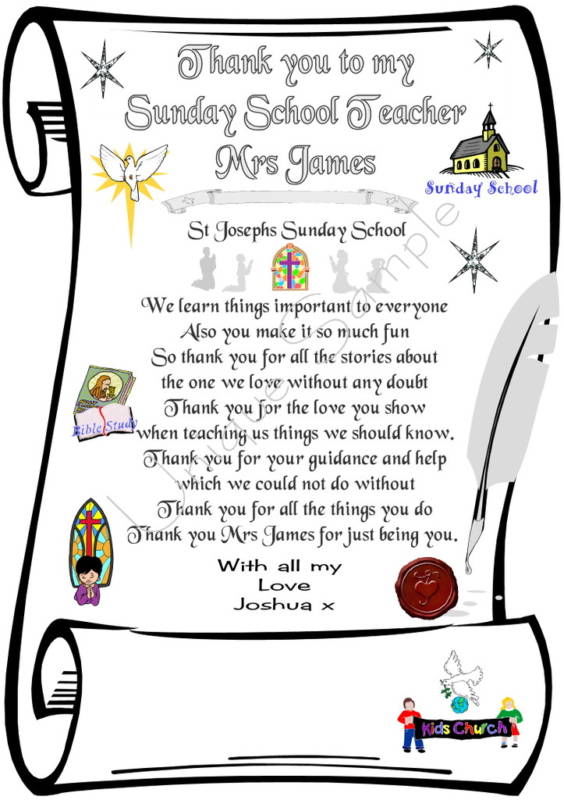 Thank you to my
Sunday School Teacher
Mrs James
Sunday School
St Josephs Sunday School
We learn things important to everyone
Also you make it so much fun
So thank you for all the stories about
the one we love without any doubt
Thank you for the love you show
when teaching us things we should know.
Thank you for your guidance and help
which we could not do without
Thank you for all the things you do
Thank you Mrs James for just being you.
Bible Study
With all my
Love
Joshua x
Kids Church
Unique Sample